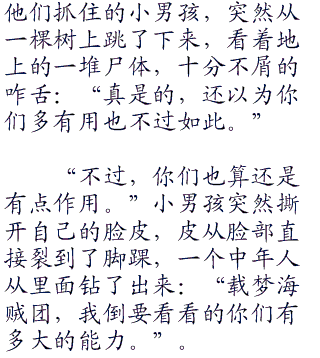 他们抓住的小男孩，突然从
一棵树上跳了下来，看着地
上的一堆尸体，十分不屑的
咋舌：“真是的，还以为你
们多有用也不过如此。”
“不过，你们也算还是
有点作用。”小男孩突然撕
开自己的脸皮，皮从脸部直
接裂到了脚踝，一个中年人
从里面钻了出来：“载梦海
贼团，我倒要看看的你们有
多大的能力。”。